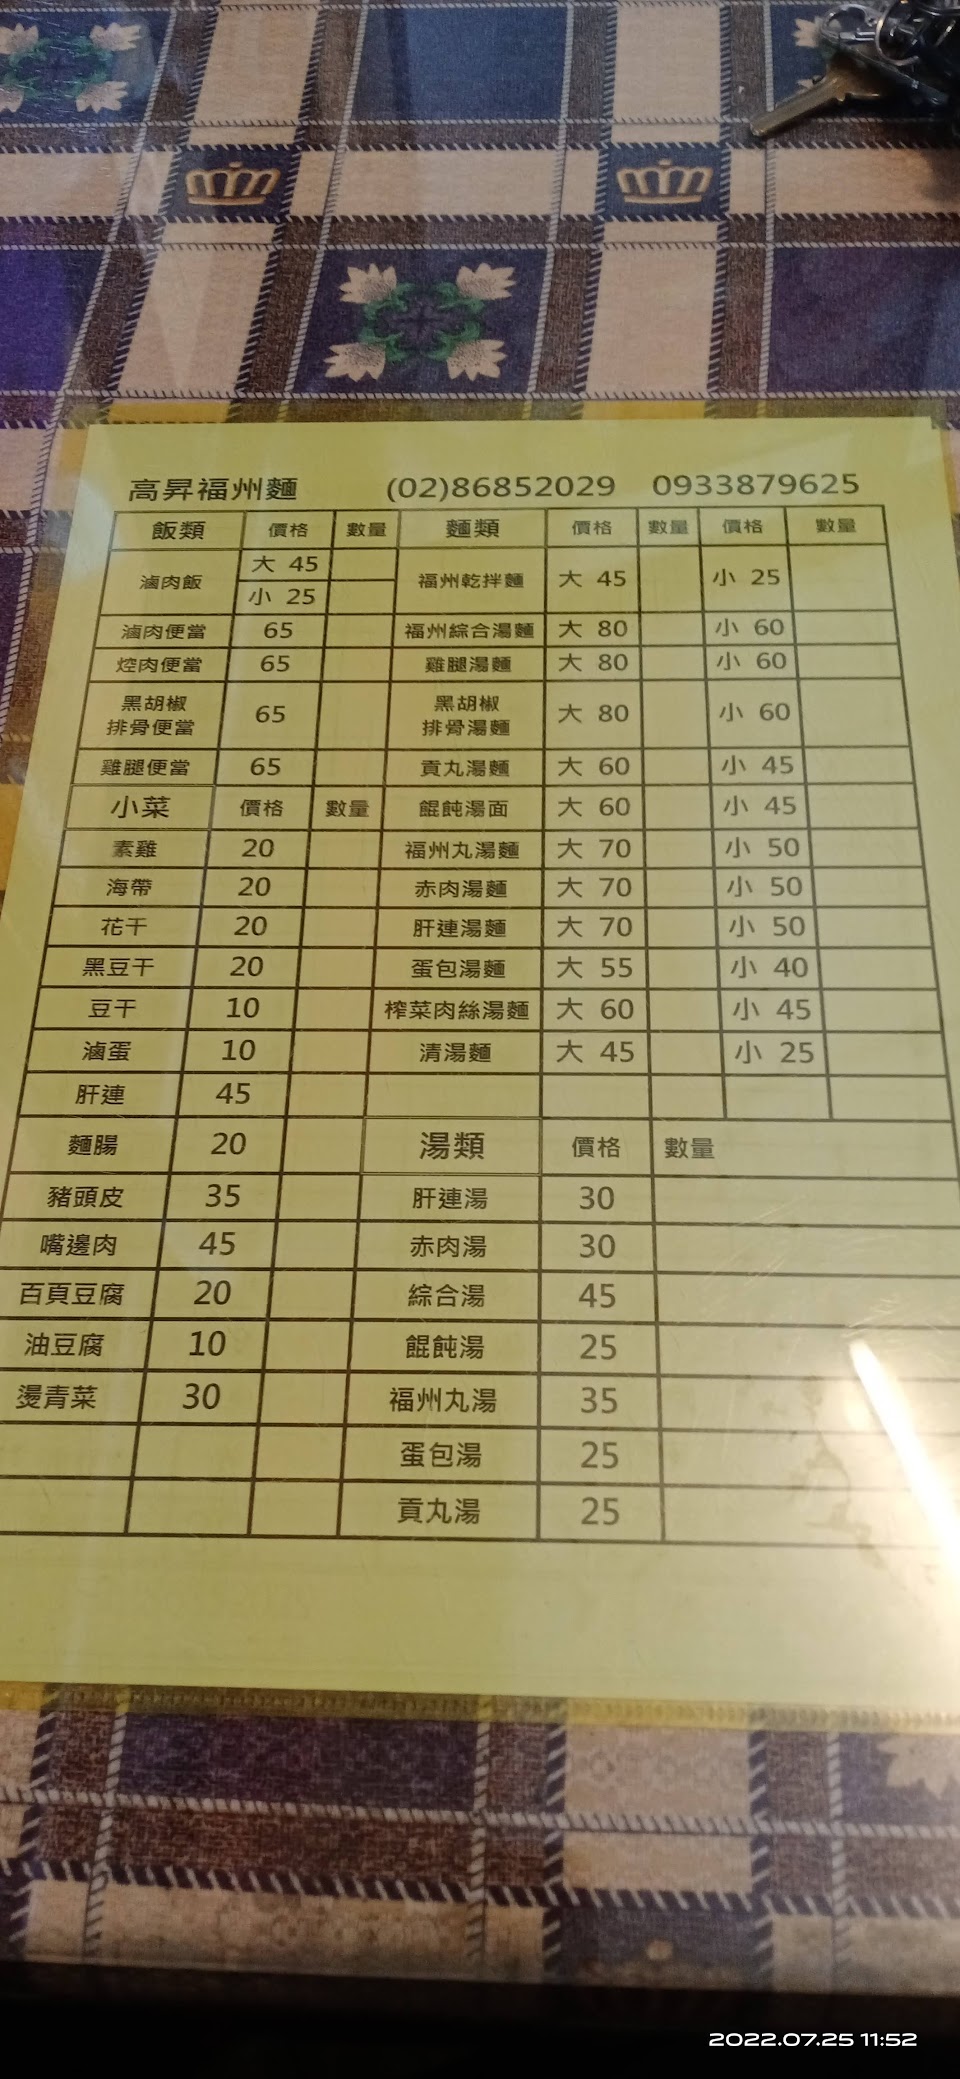 高昇福州麵 (02)86852029 0933879625
飯類 價格 數量 麵類 價格 數量 價格 數量
滷肉飯 大 45 福州乾拌麵 大 45 小 25
小 25
滷肉便當 65 福州綜合湯麵 大 80 小 60
焢肉便當 65 雞腿湯麵 大 80 小 60
黑胡椒 65 黑胡椒 大 80 小 60
排骨便當 排骨湯麵
雞腿便當 65 貢丸湯麵 大 60 小 45
小菜 價格 數量 餛飩湯面 大 60 小 45
素雞 20 福州丸湯麵 大 70 小 50
海帶 20 赤肉湯麵 大 70 小 50
花干 20 肝連湯麵 大 70 小 50
黑豆干 20 蛋包湯麵 大 55 小 40
豆干 10 榨菜肉絲湯麵 大 60 小 45
滷蛋 10 清湯麵 大 45 小 25
肝連 45
麵腸 20 湯類 價格 數量
豬頭皮 35 肝連湯 30
嘴邊肉 45 赤肉湯 30
百頁豆腐 20 綜合湯 45
油豆腐 10 餛飩湯 25
燙青菜 30 福州丸湯 35
蛋包湯 25
貢丸湯 25
2022.07.25 11:52